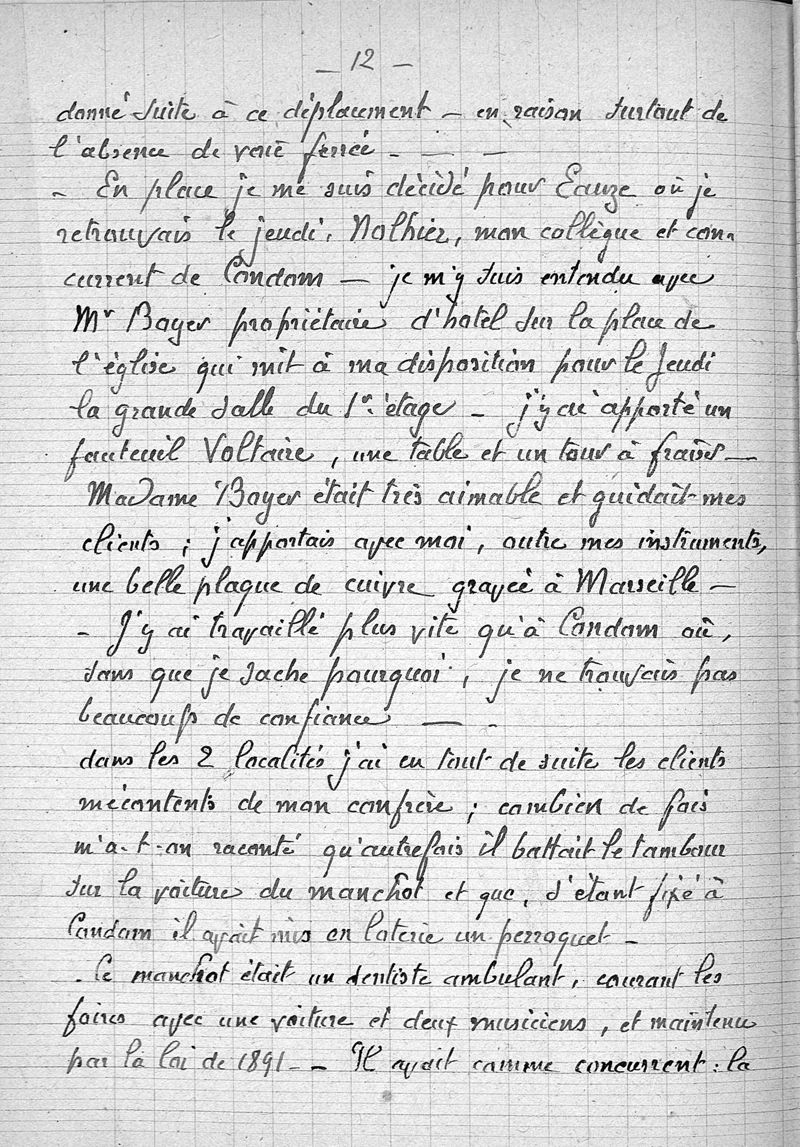 — 12 —
donné suite à ce déplacement — en raison surtout de
l'absence de voie ferrée — — —
- En place je me suis décidé pour Eauze où je
retrouvais le jeudi, Nolhier, mon collègue et con-
current de Condom — je m'y suis entendu avec
Mr Boyer propriétaire d'hotel sur la place de
l'église qui mit à ma disposition pour le Jeudi
la grande salle du 1r. étage — j'y ai apporté un
fauteuil Voltaire, une table et un tour à fraises —
Madame Boyer était très aimable et guidait mes
clients ; j'apportais avec moi, outre mes instruments,
une belle plaque de cuivre gravée à Marseille —
- J'y ai travaillé plus vite qu'à Condom où,
sans que je sache pourquoi, je ne trouvais pas
beaucoup de confiance — -
dans les 2 localités j'ai eu tout de suite les clients
mécontents de mon confrère ; combien de fois
m'a-t-on raconté qu'autrefois il battait le tambour
sur la voiture du manchot et que, s'étant fixé à
Condom il avait mis en loterie un perroquet -
- Ce manchot était un dentiste ambulant, courant les
foires avec une voiture et deux musiciens, et maintenu
par la loi de 1891 - - Il avait comme concurrent : la